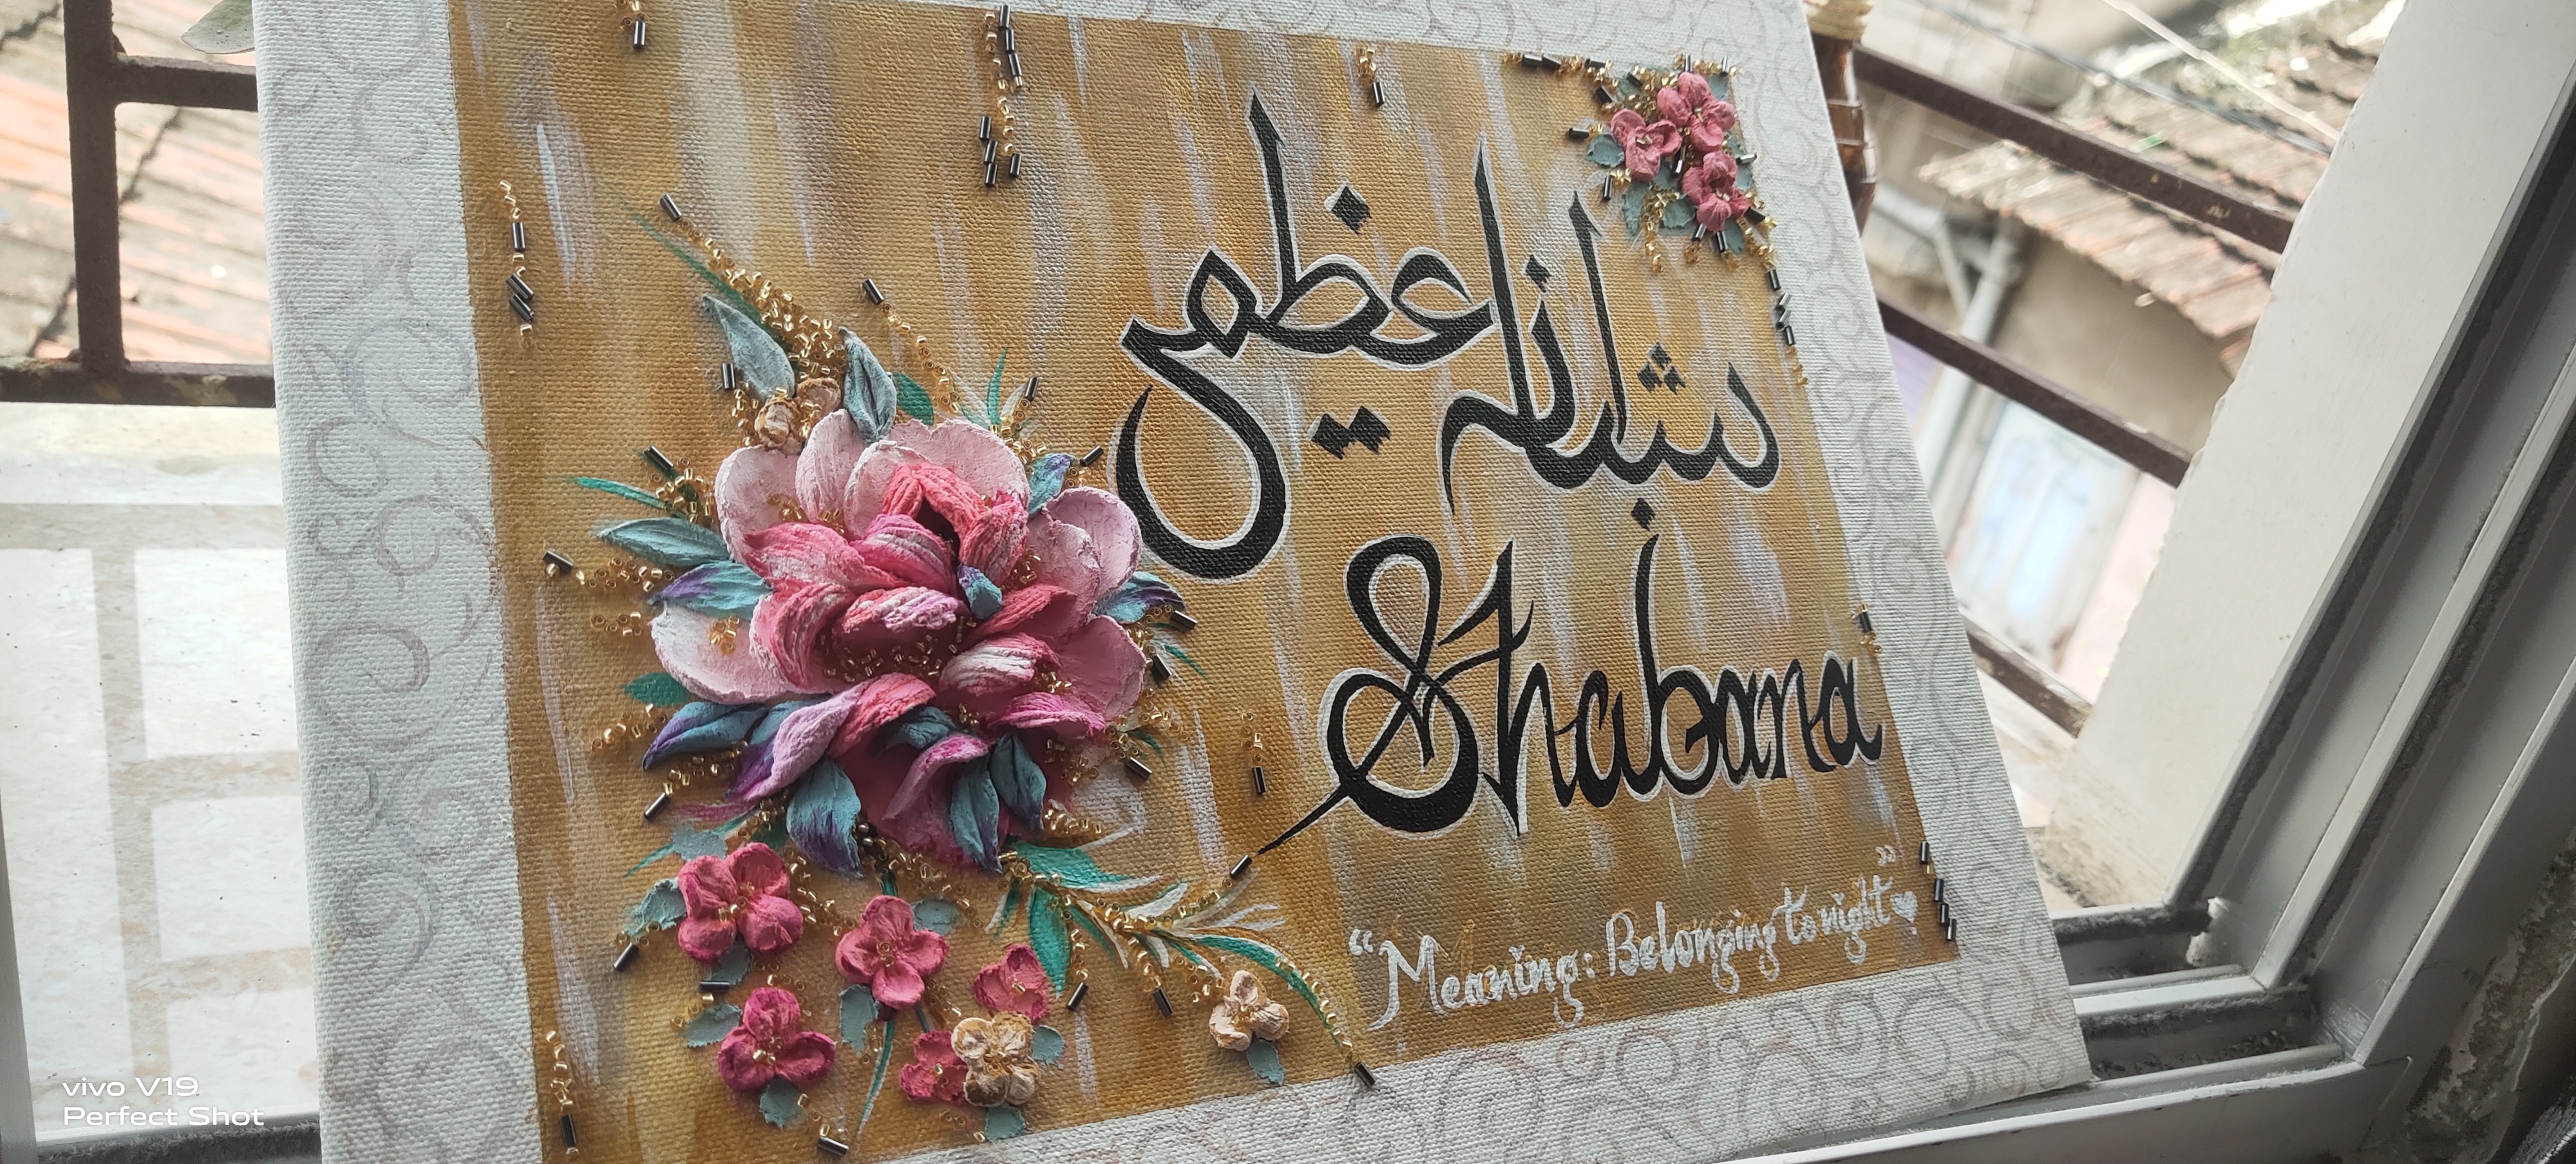 شبانه عظمي
Shabana
"Meaning: Belonging to night♥"
vivo V19
Perfect Shot